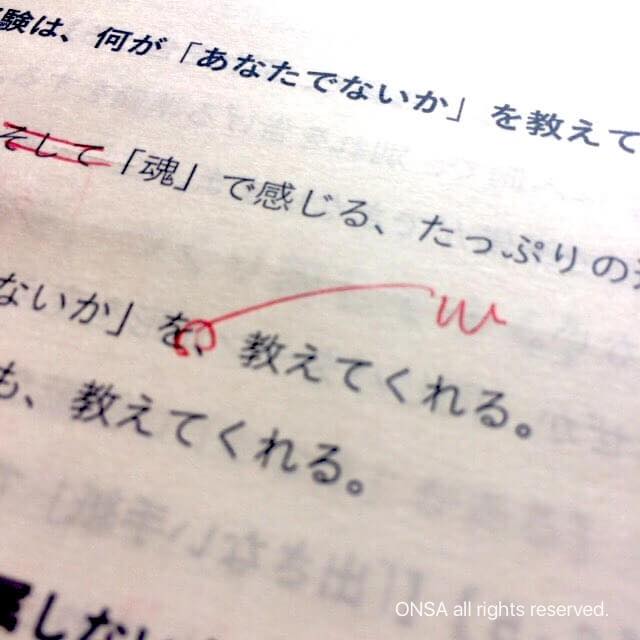 験は、何が「あなたでないか」を教えて
そして「魂」で感じる、たっぷりの
ないか」を、教えてくれる。
も、教えてくれる。
しない
ONSA all rights reserved.